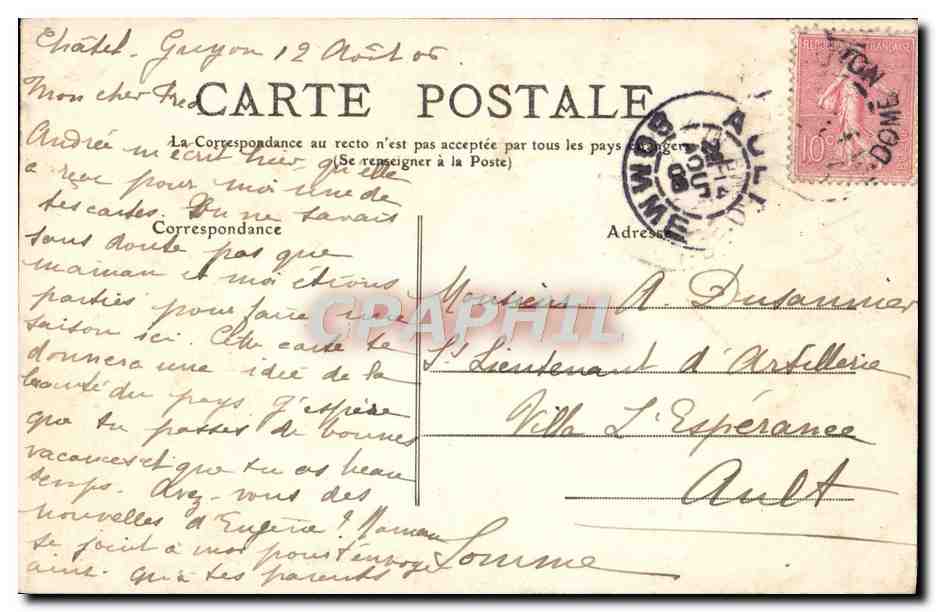 Châtel-Guyon 12 Août 06
Mon cher Fred
CARTE POSTALE
La Correspondance au recto n'est pas acceptée par tous les pays étrangers
(Se renseigner à la Poste)
Correspondance
André m'écrit hier qu'elle
a reçu pour moi une de
tes cartes. Tu ne savais
sans doute pas que
maman et moi étions
parties pour faire une
saison ici. Cette carte te
donnera une idée de la
beauté du pays. J'espère
que tu passes de bonnes
vacances et que tu as beau
temps. Avez-vous des
nouvelles d'Eugène? Maman
se joint à moi pour t'envoyer
ainsi qu'à tes parents
Adresse
Monsieur A. Dusannier
S/Lieutenant d'Artillerie
Villa L'Espérance
Ault
Somme
AULT
SOMME
AOUT
06
10c
DOME
CPAPHIL